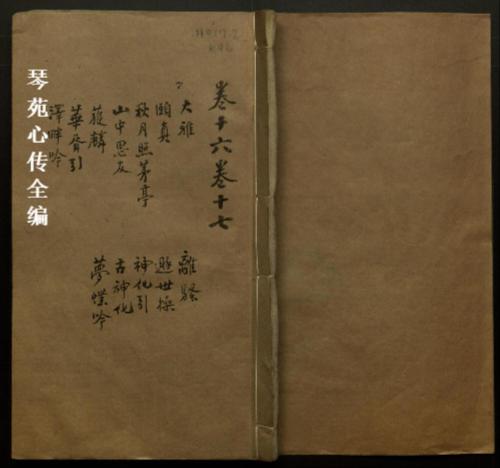 卷十六卷十七
大雅
頤真
秋月照茅亭
山中思友
獲麟
華胥引
澤畔吟
離騷
遯世操
神化引
古神化
夢蝶吟
琴苑心传全编